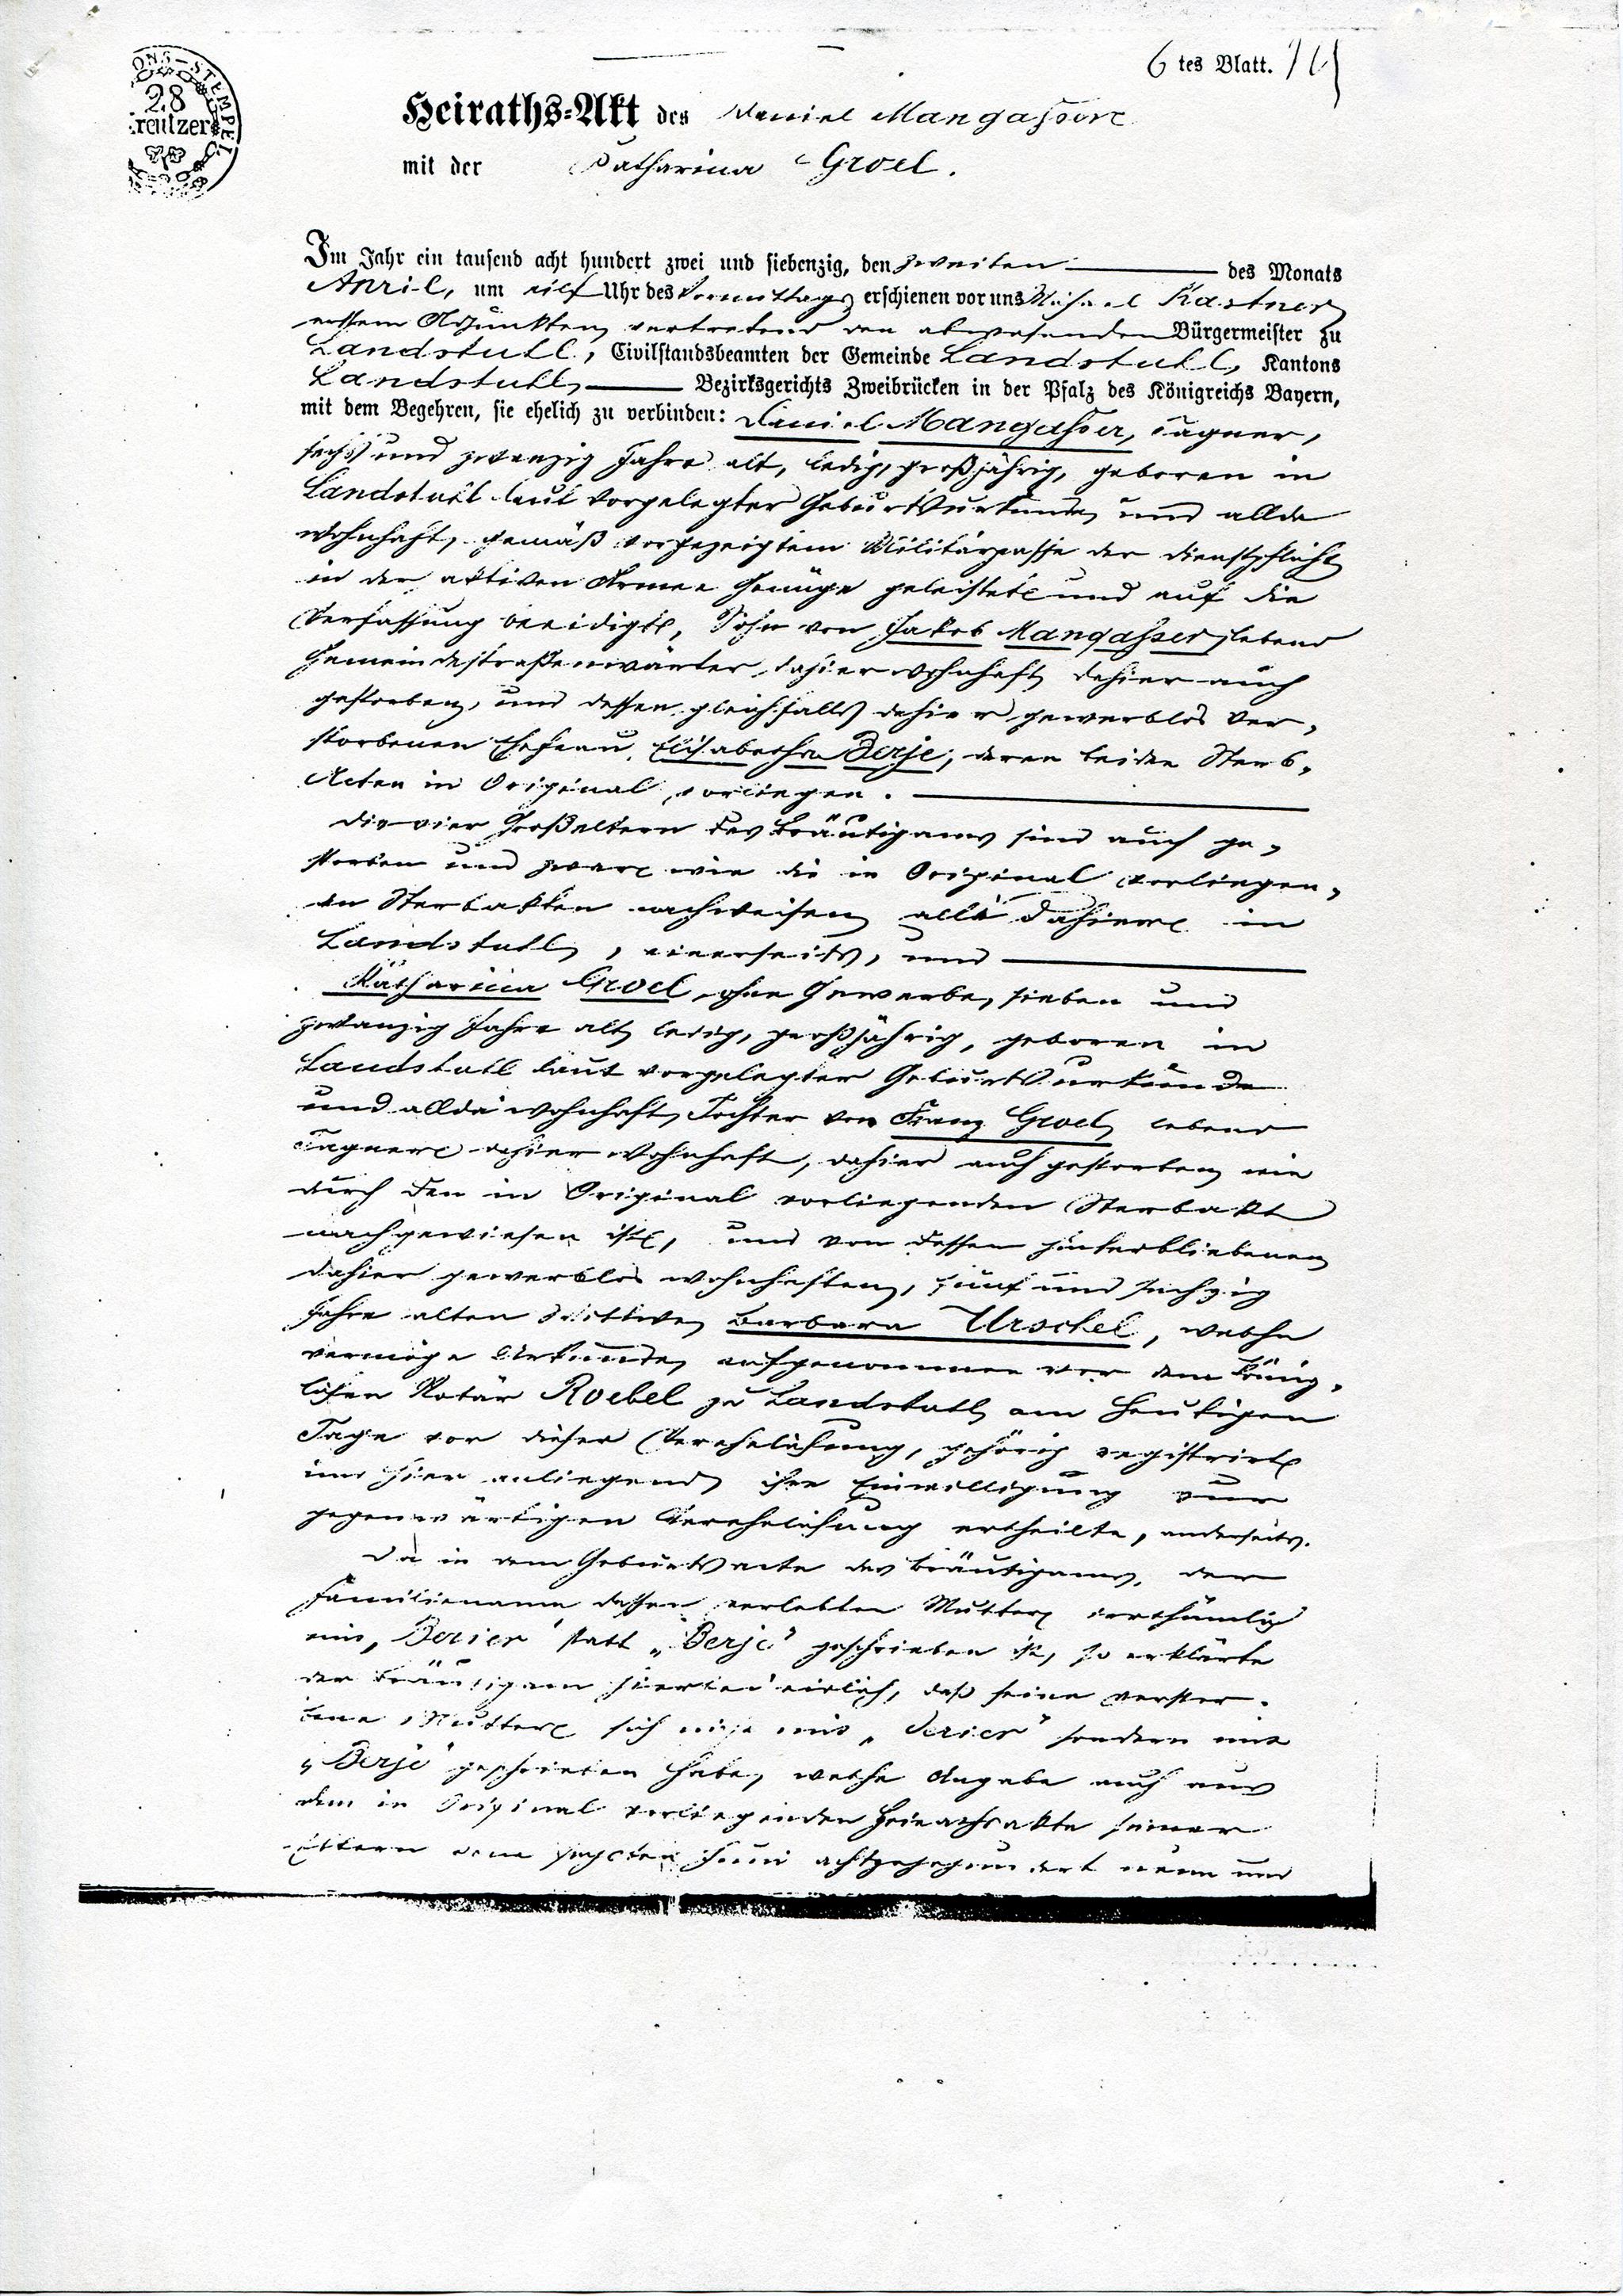 6 tes Blatt.
ONS-STEMPEL
28
Kreutzer
Heiraths-Akt des Daniel Mangasser
mit der Katharina Groel.
Im Jahr ein tausend acht hundert zwei und siebenzig, den zweiten des Monats
April, um eilf Uhr des Vormittags erschienen vor uns Michael Kastner
erstem Adjunkten, vertretend den abwesenden Bürgermeister zu
Landstuhl, Civilstandsbeamten der Gemeinde Landstuhl, Kantons
Landstuhl, Bezirksgerichts Zweibrücken in der Pfalz des Königreichs Bayern,
mit dem Begehren, sie ehelich zu verbinden: Daniel Mangasser, Tagner,
sechs und zwanzig Jahre alt, ledig, großjährig, geboren in
Landstuhl laut vorgelegter Geburtsurkunde, und allda
wohnhaft, gemäß vorgezeigtem Militärpasse der Dienstpflicht
in der aktiven Armee Genüge geleistet und auf die
Verfassung beeidigt, Sohn von Jakob Mangasser, lebend
Gemeindestraßenwärter, dahier wohnhaft, dahier auch
gestorben, und dessen gleichfalls dahier gewerblos ver-
storbenen Ehefrau, Elisabetha Berje, deren beiden Sterb-
Acten in Original vorliegen.
Die vier Großeltern des Bräutigams sind auch ge-
storben und zwar wie die in Original vorliegen-
den Sterbakten nachweisen, alle dahier in
Landstuhl, einerseits, und
Katharina Groel, ohne Gewerbe, sieben und
zwanzig Jahre alt, ledig, großjährig, geboren in
Landstuhl laut vorgelegter Geburtsurkunde
und allda wohnhaft, Tochter von Franz Groel, lebend
Tagner dahier wohnhaft, dahier auch gestorben, wie
durch den in Original vorliegenden Sterbakt
nachgewiesen ist, und von dessen hinterbliebenen
dahier gewerblos wohnhaften, fünf und sechzig
Jahre alten Wittwe, Barbara Urschel, welche
vermöge Urkunde, aufgenommen vor dem König-
lichen Notär Roebel zu Landstuhl, am heutigen
Tage vor dieser Verehelichung, gehörig registrirt
und hier anliegend, ihre Einwilligung zur
gegenwärtigen Verehelichung ertheilte, anderseits.
Da in dem Geburtsacte des Bräutigams, der
Familienname dessen verlebten Mutter irrthümlich
mit „Berier" statt „Berje" geschrieben ist, so erklärte
der Bräutigam hierbei eidlich, daß seine verstor-
bene Mutter sich nicht mit „Berier" sondern mit
„Berje" geschrieben habe, welche Angabe auch aus
dem in Original vorliegenden Heirathsakte seiner
Eltern vom sechsten Juni achtzehnhundert neun und